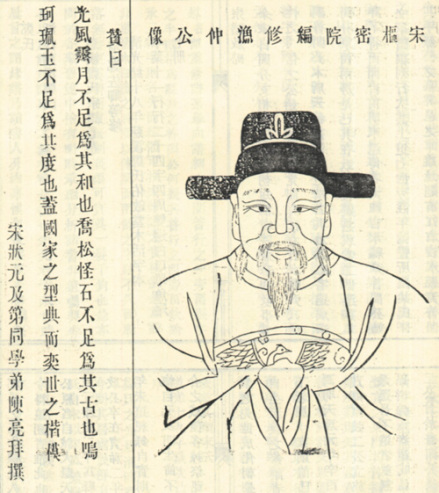 宋樞密院編修漁仲公像
贊曰
光風霽月不足爲其和也喬松怪石不足爲其古也鳴
珂珮玉不足爲其度也蓋國家之型典而奕世之楷模
宋狀元及第同學弟陳亮拜撰